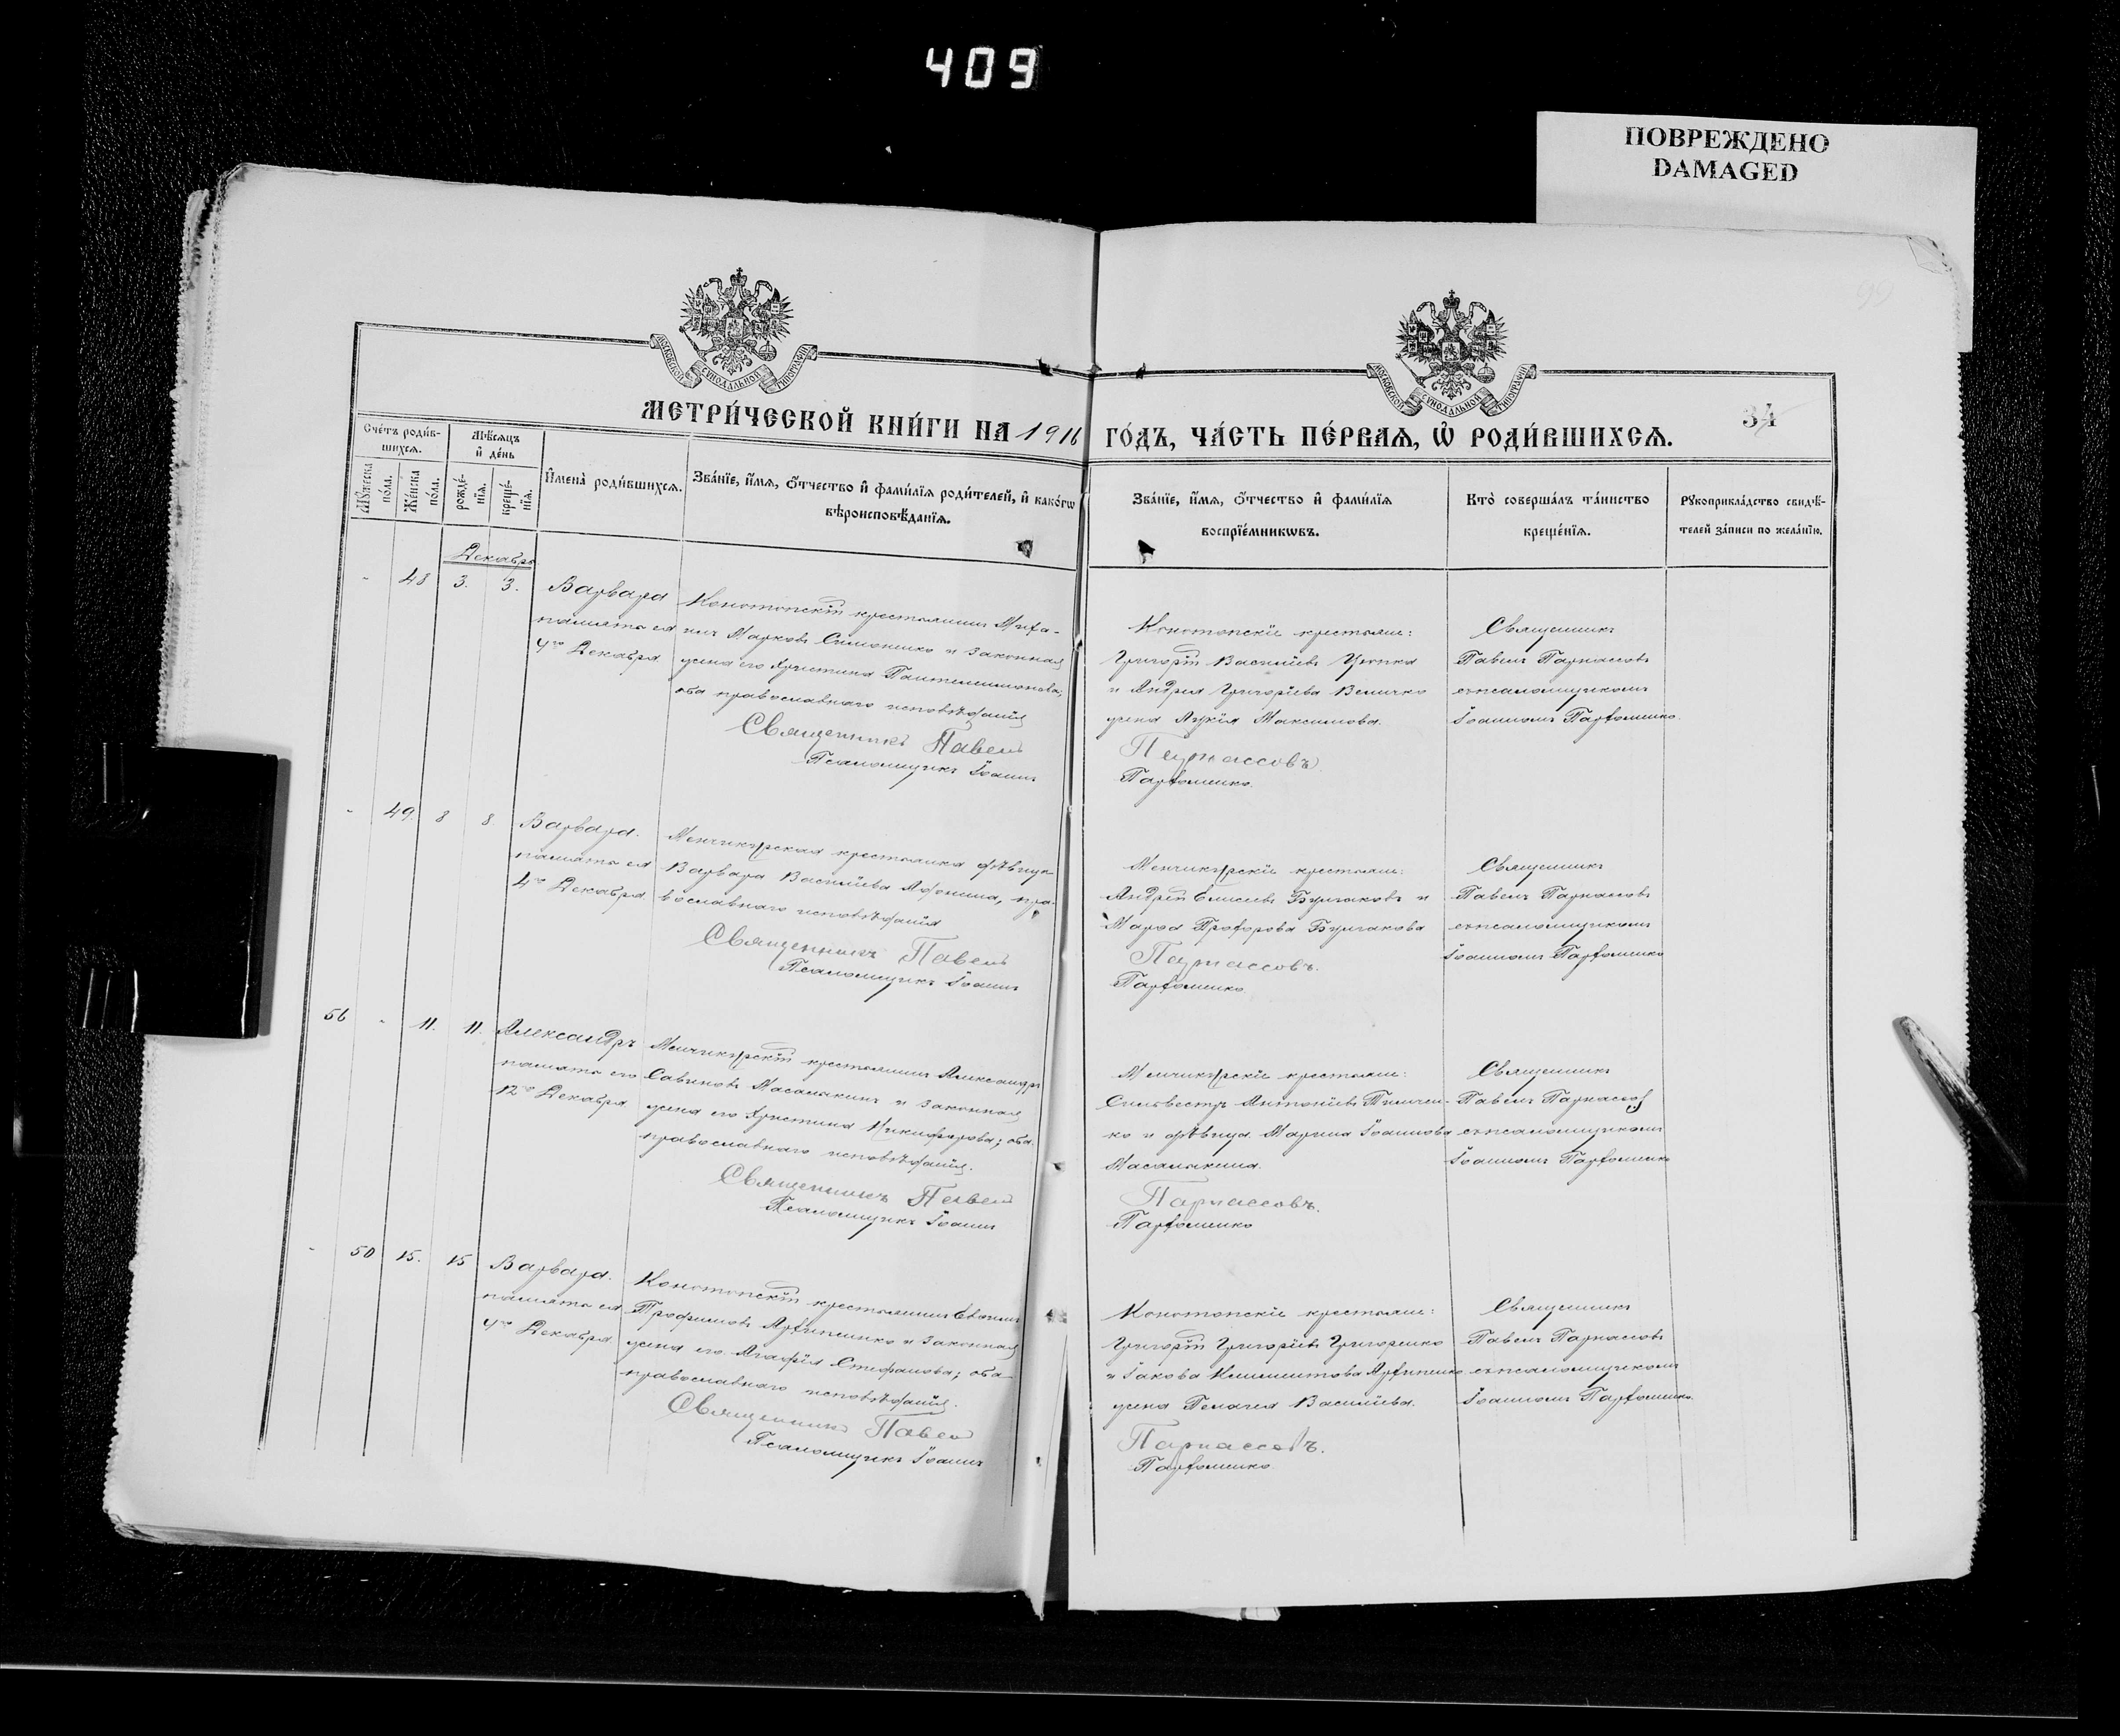 409
ПОВРЕЖДЕНО
DAMAGED
МОСКОВСКОЙ СѴНОДАЛЬНОЙ ТИПОГРАФІИ
МОСКОВСКОЙ СѴНОДАЛЬНОЙ ТИПОГРАФІИ
МЕТРИ́ЧЕСКОЙ КНИ́ГИ НА 1916 ГО́ДЪ, ЧА́СТЬ ПЕ́РВАѦ, Ѡ҆ РОДИ́ВШИХСѦ.
34
Сче́тъ роди́в-
шихсѧ.
Мꙋ́жеска по́ла.
Же́нска по́ла.
Мѣ́сѧцъ
и҆ де́нь
рожде́-
нїѧ.
креще́-
нїѧ.
И҆мена̀ роди́вшихсѧ.
Зва́нїе, и҆́мѧ, ѻ҆́тчество и҆ фами́лїѧ роди́телей, и҆ како́гѡ
вѣроисповѣ́данїѧ.
Зва́нїе, и҆́мѧ, ѻ҆́тчество и҆ фами́лїѧ
воспрїе́мникѡвъ.
Кто̀ соверша́лъ та́инство
креще́нїѧ.
Рꙋкоприкла́дство свидѣ́-
телей за́писи по жела́нїю.
Декабрь
- 48 3. 3.
Варвара
память ея
4го Декабря
Конотопскій крестьянинъ Миха-
илъ Марковъ Симоненко и законная
жена его Христина Пантелеимонова,
оба православнаго исповѣданія
Священникъ Павелъ
Псаломщикъ Іоаннъ
Конотопскіе крестьяне:
Григорій Васильевъ
и Андрея Григорьева Величко
жена Лукія Максимова.
Парнассовъ
Парфоменко.
Священникъ
Павелъ Парнассовъ
съ псаломщикомъ
Іоанномъ Парфоменко.
- 49. 8 8.
Варвара.
память ея
4го Декабря
Менчикурская крестьянка дѣвица
Варвара Васильева Афонина, пра-
вославнаго исповѣданія
Священникъ Павелъ
Псаломщикъ Іоаннъ
Менчикурскіе крестьяне:
Андрей Елисеевъ Булгаковъ и
Марѳа Прохорова Булгакова
Парнассовъ.
Парфоменко
Священникъ
Павелъ Парнассовъ
съ псаломщикомъ
Іоанномъ Парфоменко
56 - 11. 11.
Александръ
память его
12го Декабря
Менчикурскій крестьянинъ Александръ
Савиновъ Масалыкинъ и законная
жена его Христина Никифорова; оба
православнаго исповѣданія.
Священникъ Павелъ
Псаломщикъ Іоаннъ
Менчикурскіе крестьяне:
Сильвестръ Антоніевъ Тимчен-
ко и дѣвица Марина Іоаннова
Масалыкина.
Парнассовъ.
Парфоменко
Священникъ
Павелъ Парнассовъ
съ псаломщикомъ
Іоанномъ Парфоменко
- 50 15. 15
Варвара.
память ея
4го Декабря
Конотопскій крестьянинъ
Трофимовъ Архипенко и законная
жена его Агафія Стефанова; оба
православнаго исповѣданія.
Священникъ Павелъ
Псаломщикъ Іоаннъ
Конотопскіе крестьяне:
Григорій Григорьевъ Григоренко
и Іакова Климентова Архипенко
жена Пелагея Васильева.
Парнассовъ.
Парфоменко
Священникъ
Павелъ Парнассовъ
съ псаломщикомъ
Іоанномъ Парфоменко.